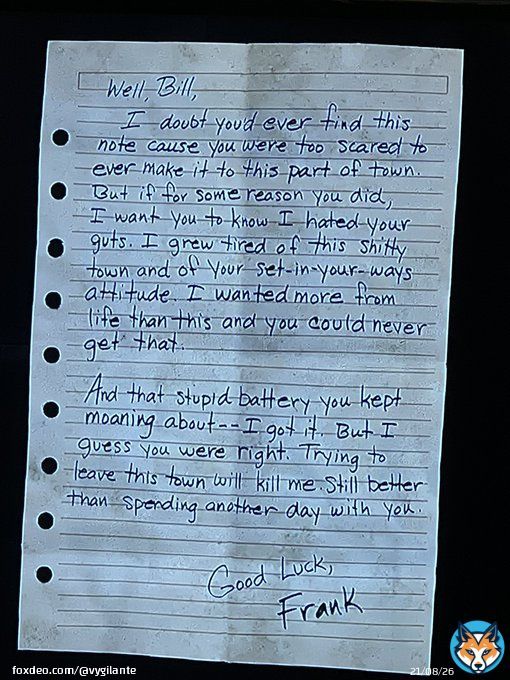 Well, Bill,
I doubt you'd ever find this
note cause you were too scared to
ever make it to this part of town.
But if for some reason you did,
I want you to know I hated your
guts. I grew tired of this shitty
town and of your set-in-your-ways
attitude. I wanted more from
life than this and you could never
get that.
And that stupid battery you kept
moaning about--I got it. But I
guess you were right. Trying to
leave this town will kill me. Still better
than spending another day with you.
Good Luck,
Frank
foxdeo.com/@vygilante
21/08/26